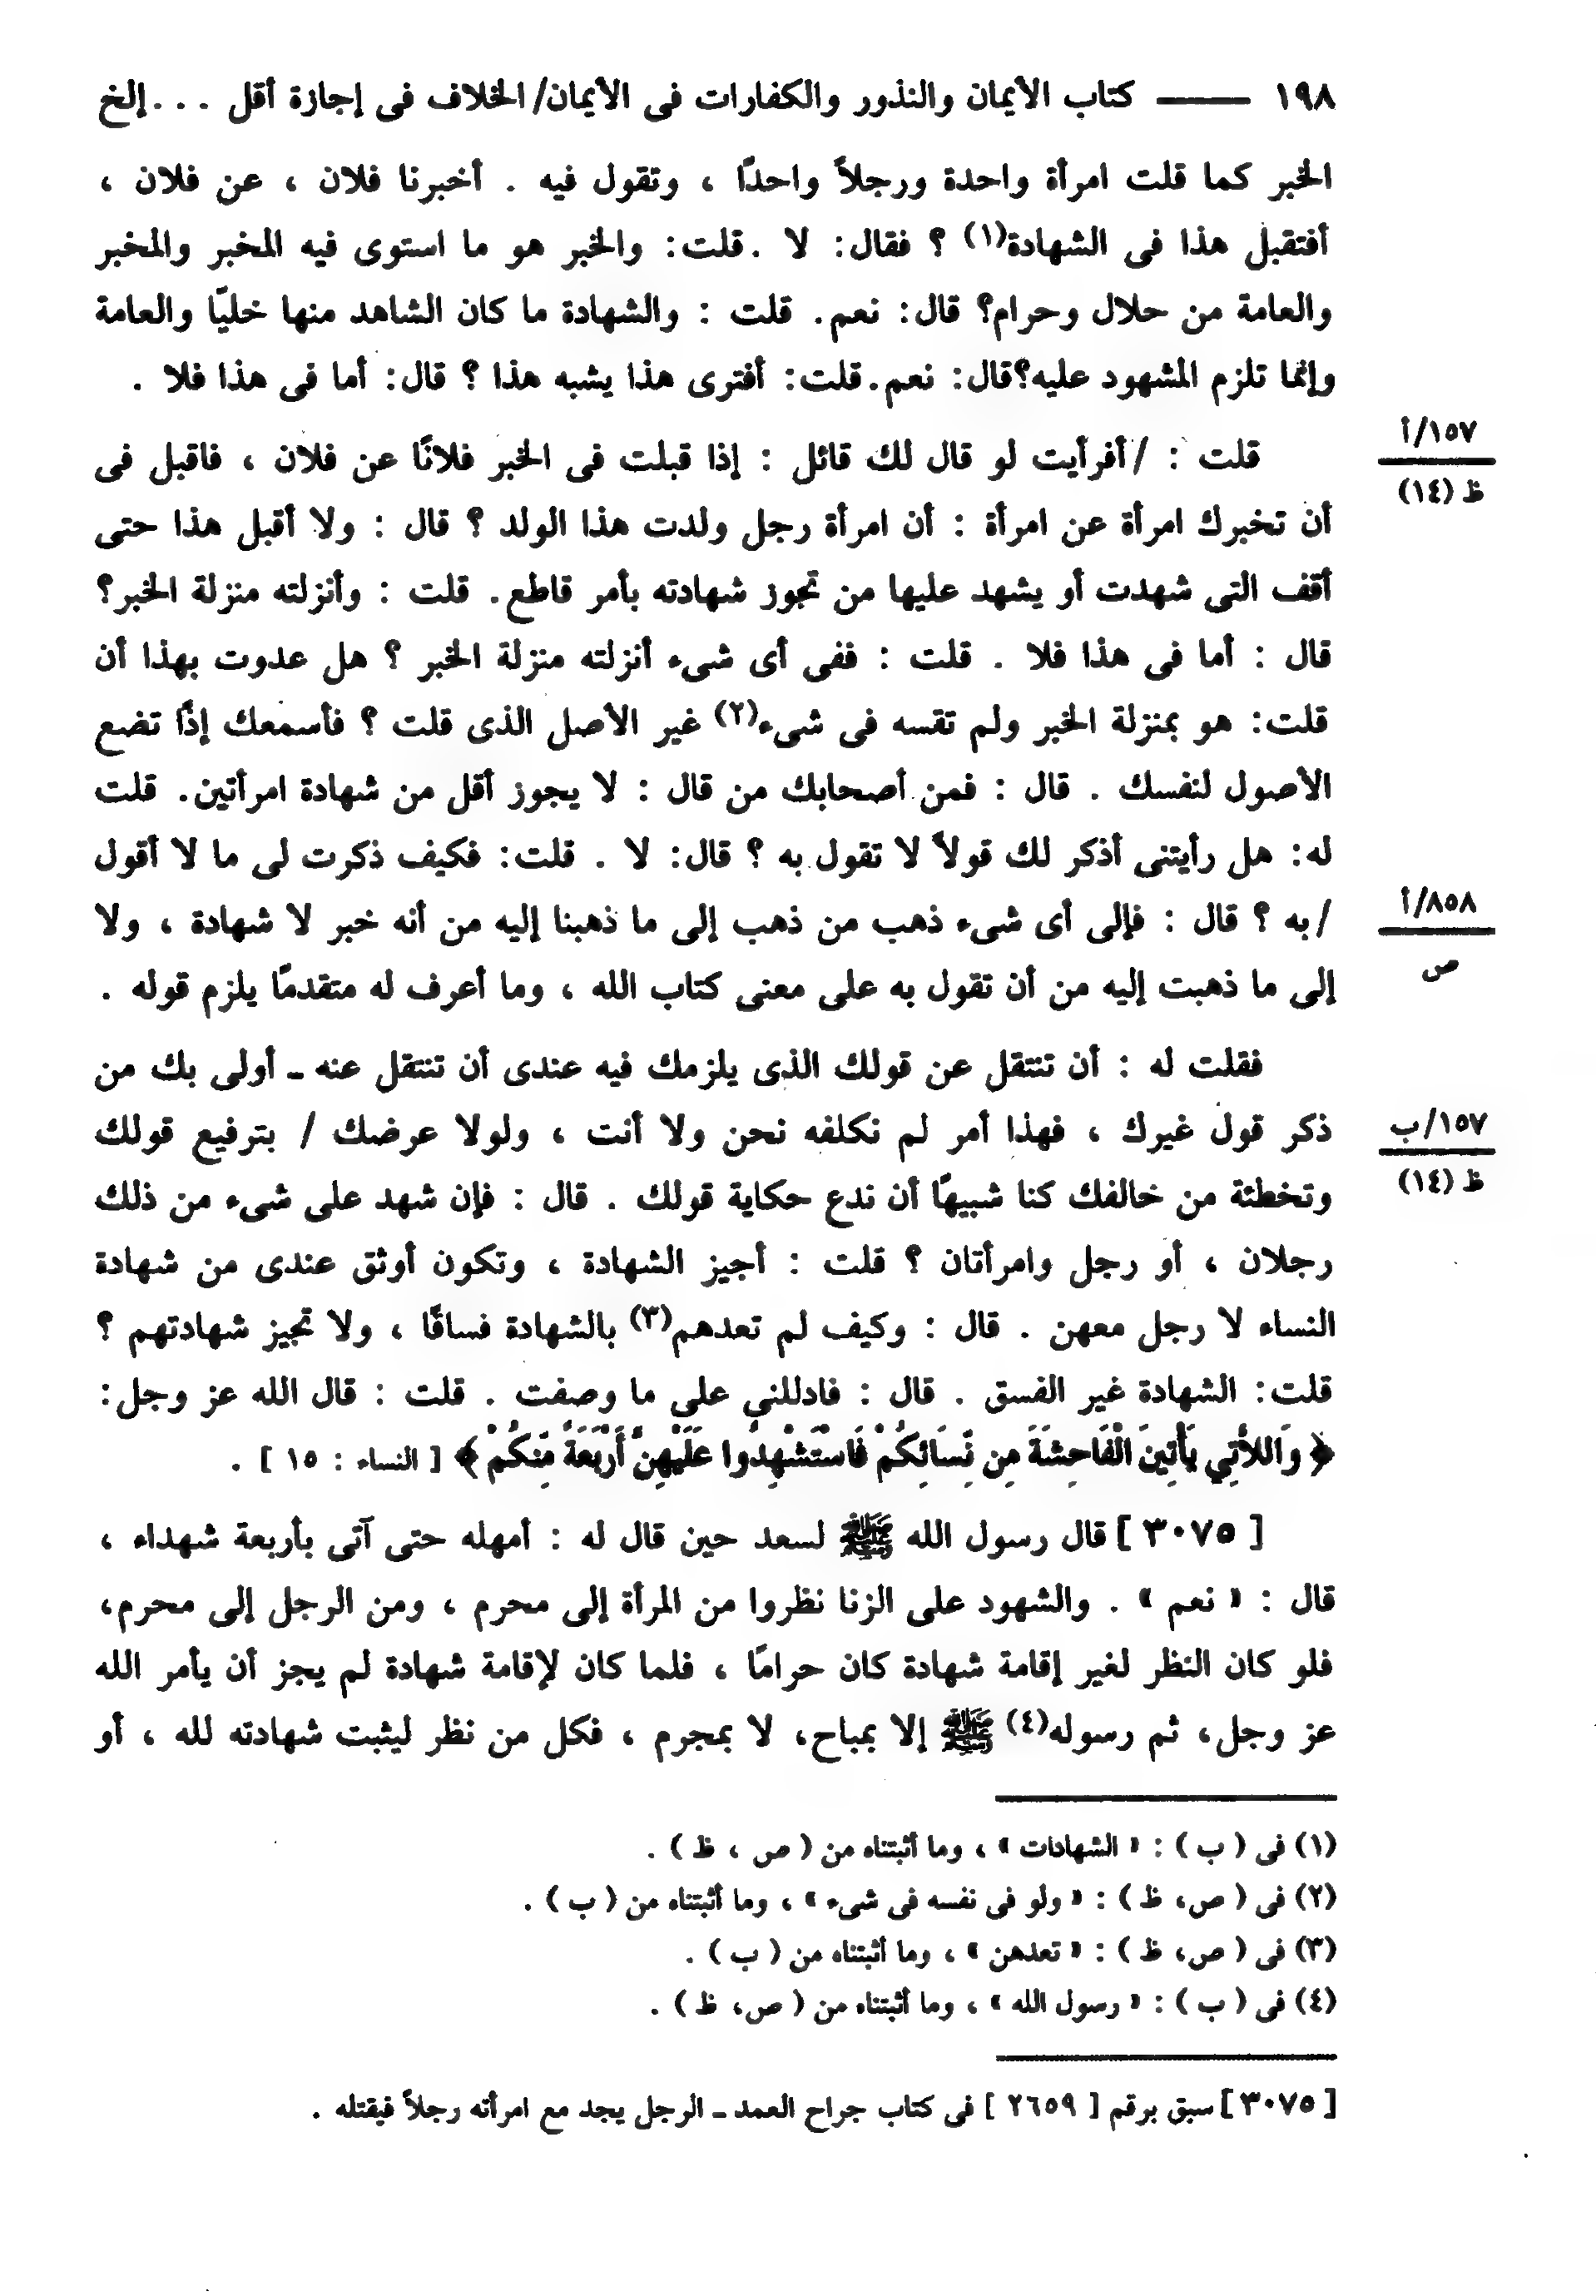 ١٩٨ ــــــ كتاب الأيمان والنذور والكفارات فى الأيمان/ الخلاف فى إجازة أقل . . . إلخ
الخبر كما قلت امرأة واحدة ورجلاً واحدًا ، وتقول فيه . أخبرنا فلان ، عن فلان ،
أفتقبل هذا فى الشهادة(١) ؟ فقال: لا .قلت: والخبر هو ما استوى فيه المخبر والمخبر
والعامة من حلال وحرام؟ قال: نعم. قلت : والشهادة ما كان الشاهد منها خليًا والعامة
وإنما تلزم المشهود عليه؟قال: نعم.قلت: أفترى هذا يشبه هذا ؟ قال: أما فى هذا فلا .
قلت : /أفرأيت لو قال لك قائل : إذا قبلت فى الخبر فلانًا عن فلان ، فاقبل فى
١٥٧/أ
ظ (١٤)
أن تخبرك امرأة عن امرأة : أن امرأة رجل ولدت هذا الولد ؟ قال : ولا أقبل هذا حتى
أقف التى شهدت أو يشهد عليها من تجوز شهادته بأمر قاطع. قلت : وأنزلته منزلة الخبر؟
قال : أما فى هذا فلا . قلت : ففى أى شىء أنزلته منزلة الخبر ؟ هل عدوت بهذا أن
قلت: هو بمنزلة الخبر ولم تقسه فى شىء(٢) غير الأصل الذى قلت ؟ فأسمعك إذًا تضع
الأصول لنفسك . قال : فمن أصحابك من قال : لا يجوز أقل من شهادة امرأتين. قلت
له: هل رأيتنى أذكر لك قولاً لا تقول به ؟ قال: لا . قلت: فكيف ذكرت لى ما لا أقول
/به ؟ قال : فإلى أى شىء ذهب من ذهب إلى ما ذهبنا إليه من أنه خبر لا شهادة ، ولا
٨٥٨/أ
ص
إلى ما ذهبت إليه من أن تقول به على معنى كتاب الله ، وما أعرف له متقدمًا يلزم قوله .
فقلت له : أن تنتقل عن قولك الذى يلزمك فيه عندى أن تنتقل عنه ـ أولى بك من
ذكر قول غيرك ، فهذا أمر لم نكلفه نحن ولا أنت ، ولولا عرضك / بترفيع قولك
١٥٧/ب
ظ (١٤)
وتخطئة من خالفك كنا شبيهًا أن ندع حكاية قولك . قال : فإن شهد على شىء من ذلك
رجلان ، أو رجل وامرأتان ؟ قلت : أجيز الشهادة ، وتكون أوثق عندى من شهادة
النساء لا رجل معهن . قال : وكيف لم تعدهم(٣) بالشهادة فساقًا ، ولا تجيز شهادتهم ؟
قلت: الشهادة غير الفسق . قال : فادللني على ما وصفت . قلت : قال الله عز وجل:
﴿ وَاللاَّتِي يَأْتِينَ الْفَاحِشَةَ مِن نِّسَائِكُمْ فَاسْتَشْهِدُوا عَلَيْهِنَّ أَرْبَعَةً مِّنكُمْ ﴾ [ النساء : ١٥ ] .
[ ٣٠٧٥ ] قال رسول الله ﷺ لسعد حين قال له : أمهله حتى آتى بأربعة شهداء ،
قال : « نعم » . والشهود على الزنا نظروا من المرأة إلى محرم ، ومن الرجل إلى محرم،
فلو كان النظر لغير إقامة شهادة كان حرامًا ، فلما كان لإقامة شهادة لم يجز أن يأمر الله
عز وجل، ثم رسوله(٤) ﷺ إلا بمباح، لا بمجرم ، فكل من نظر ليثبت شهادته لله ، أو
(١) فى ( ب ) : « الشهادات » ، وما أثبتناه من ( ص ، ظ ) .
(٢) فى ( ص، ظ ) : « ولو فى نفسه فى شىء » ، وما أثبتناه من ( ب ) .
(٣) فى ( ص، ظ ) : « تعدهن » ، وما أثبتناه من ( ب ) .
(٤) فى ( ب ) : « رسول الله » ، وما أثبتناه من ( ص، ظ ) .
[ ٣٠٧٥ ] سبق برقم [ ٢٦٥٩ ] فى كتاب جراح العمد ـ الرجل يجد مع امرأته رجلاً فيقتله .